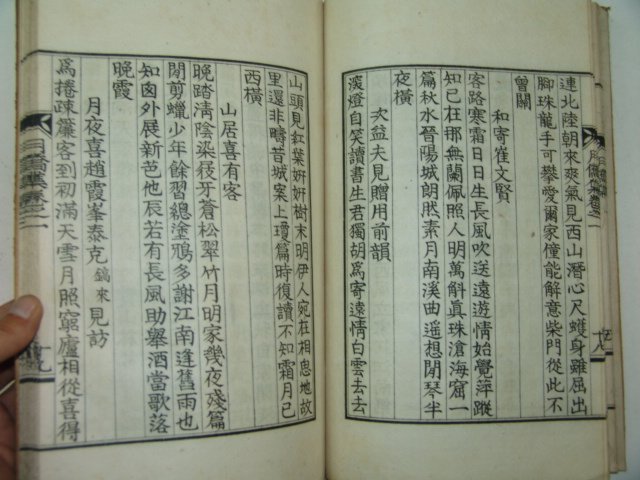 連北陸朝來爽氣見西山潛心尺蠖身雖屈出
脚珠龍手可攀愛爾家僮能解意柴門從此不
曾關
和寄崔文賢
客路寒霜日日生長風吹送遠遊情始覺萍蹤
知已在挪無蘭佩照人明萬斛真珠滄海窟一
篇秋水晉陽城朗然素月南溪曲遥想閒琴半
夜橫
次益夫見贈用前韻
滾燈自笑讀書生君獨胡爲寄遠情白雲去去
山頭見紅葉妍妍樹末明伊人宛在相思地故
里還非疇昔城案上瓊篇時復讀不知霜月已
西橫
山居喜有客
晚踏淸陰染筱牙蒼松翠竹月明家幾夜殘篇
閒剪蠟少年餘習總塗鴉多謝江南逢舊雨也
知囱外展新芭他辰若有長風助擧酒當歌落
晚霞
月夜喜趙霞峯泰克鎬來見訪
爲捲疎簾客到初滿天雪月照窮廬相從喜得